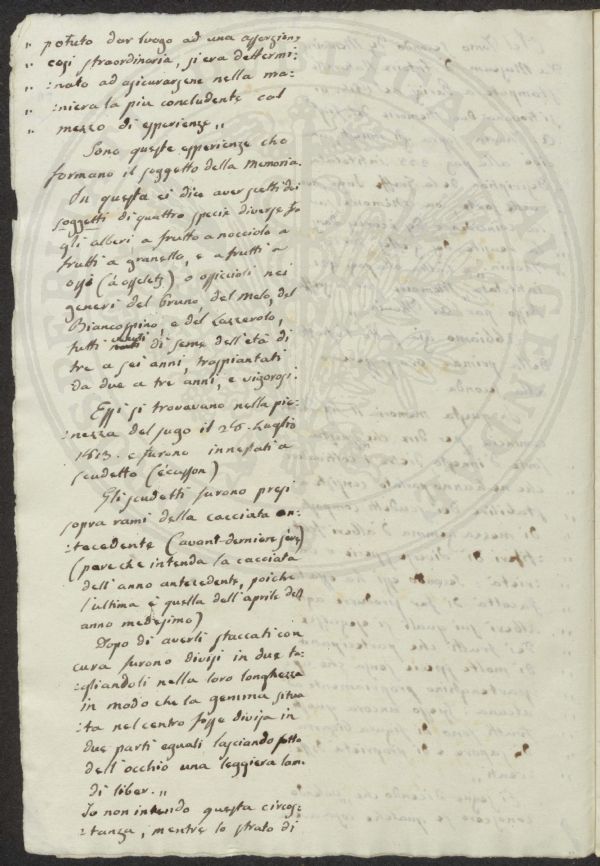 " potuto dar luogo ad una asserzione
" così straordinaria, si era determi:
" :nato ad asicurarsene nella ma:
" :niera la più concludente col
" mezzo di esperienze "
Sono queste esperienze che
formano il soggetto della Memoria.
In questa ei dice aver scelti dei
soggetti di quattro specie diverse fra
gli alberi a frutto a nocciolo a
frutti a granello, e a frutti a
ossi (à osselets) o ossicioli nei
generi del Pruno, del Melo, del
Biancospino, e del Lazzerolo,
tutti venuti di seme dell'età di
tre a sei anni, traspiantati
da due a tre anni, e vigorosi.
Essi si trovavano nella pie:
:nezza del sugo il 26. Luglio
1813. e furono innestati a
scudetto (écusson)
Gli scudetti furono presi
sopra rami della cacciata an:
:tecedente (avant-derniere séve)
(pare che intenda la cacciata
dell'anno antecedente, poichè
l'ultima è quella dell'aprile dell'
anno medesimo)
Dopo di averli staccati con
cura furono divisi in due ta:
:gliandoli nella loro longhezza
in modo che la gemma situa
:ta nel centro fosse divisa in
due parti eguali lasciando sotto
dell'occhio una leggiera lam.
di liber. "
Io non intendo questa circos:
:tanza, mentre lo strato di